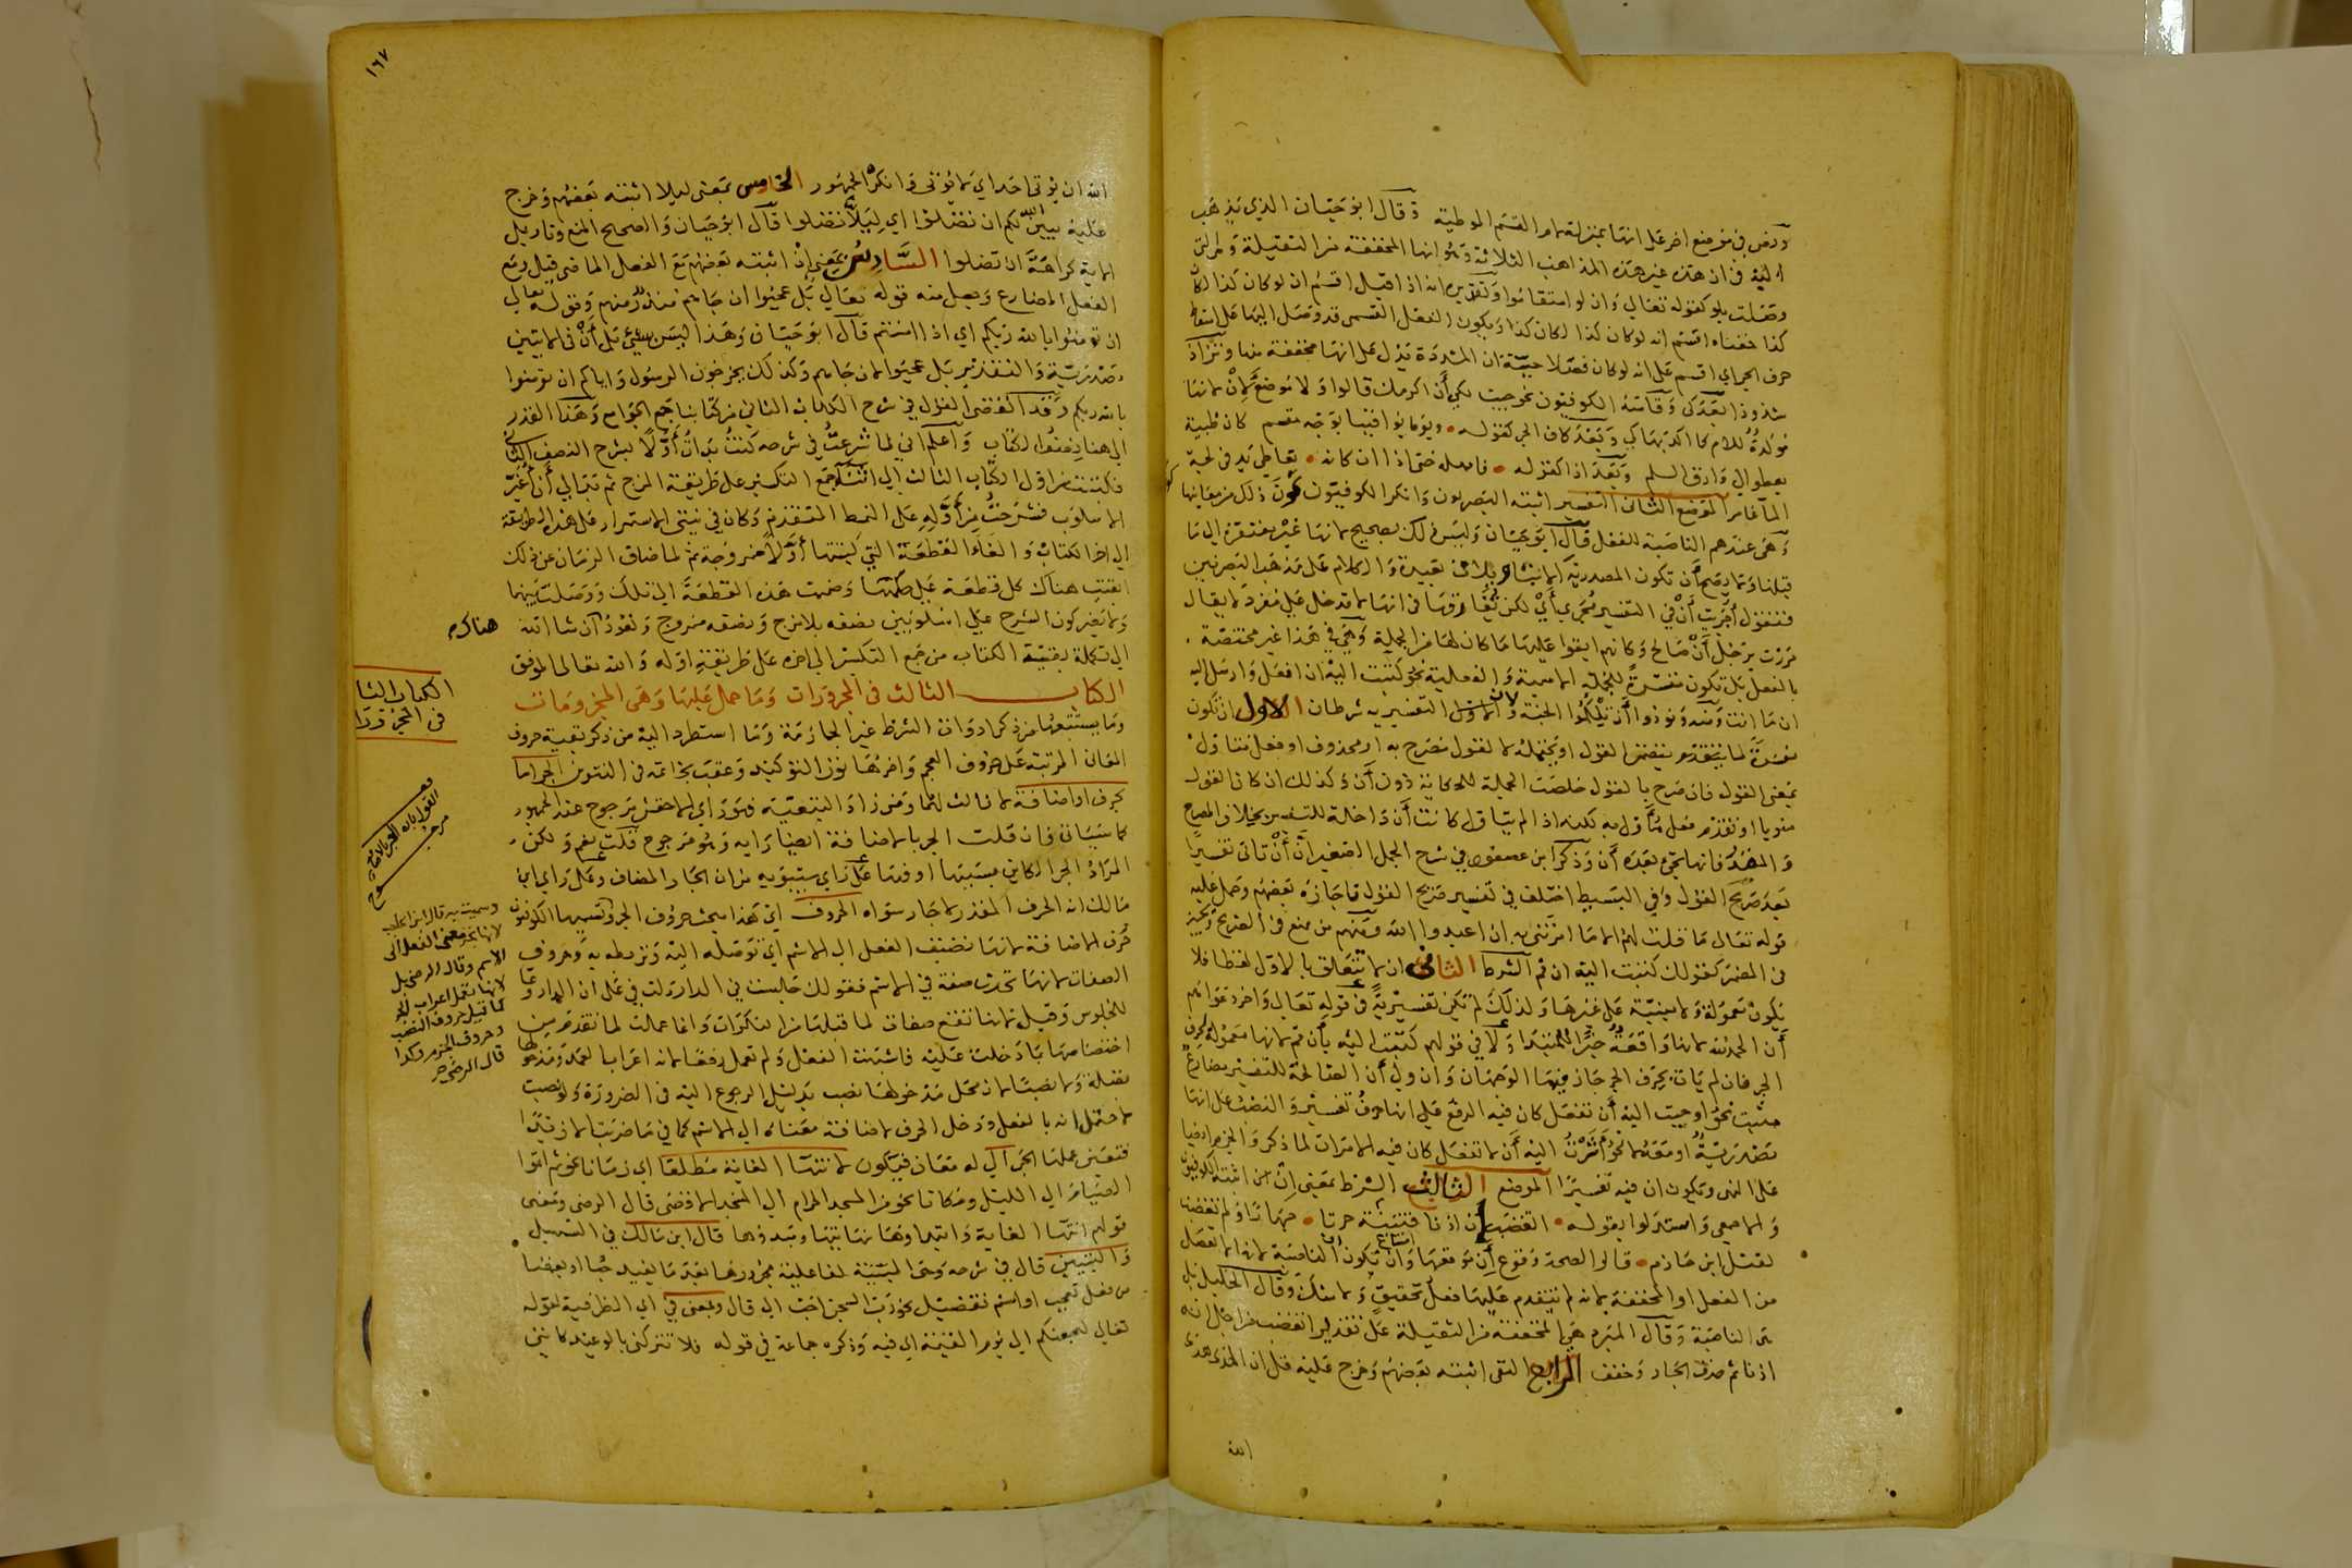 ونص في موضع اخر على انها بمنزلة لام القسم الموطية وقال ابو حيان الذي يذهب
اليه في ان هذه غير هذه المذاهب الثلاثة وهو انها المخففة من الثقيلة
وصلت بلو كقوله تعالى وان لو استقاموا وتقديره انه اذا قيل اقسم ان لو كان كذا لكان
كذا معناه اقسم انه لو كان كذا لكان كذا ويكون الفعل القسمى قد وصل اليها على اسقاط
حرف الجر اي اقسم على انه لو كان فصلا حيية ان المشددة تدل على انها مخففة منها وتزاد
شذوذا بعد كي وقاسه الكوفيون نحو جيت لكي أن اكرمك قالوا ولا موضع لأن لانها
موكدة للام كما اكدتها كي وبعد كاف الجر كقوله ويوما توافينا بوجه مقسم كان ظبية
تعطو الى وارق السلم وبعد اذا كقوله فامهله حتى اذا ان كانه معاطي يد في لجة
الما غامر الموضع الثاني التفسير اثبته البصريون وانكر الكوفيون كون ذلك من معانيها
وهي عندهم الناصبة للفعل قال ابو حيان وليس ذلك بصحيح لانها غير مفتقرة الى ما
قبلها ولا يصح أن تكون المصدرية الا بتاويلات بعيدة والكلام على مذهب البصريين
فنقول أجريت أن في التفسير مجرى أي لكن تفارقها في انها لا تدخل على مفرد لا يقال
مررت برجل أن صالح وكانهم ابقوا عليها ما كان لها من الجملة وهي في هذا غير مختصة
بالفعل بل تكون مفسرة للجملة الاسمية والفعلية نحو كتبت اليه ان افعل وارسل اليه
ان ما انت وهذه ونودوا أن تلكموا الجنة ولان التفسيرية شرطان الاول ان تكون
مفسرة لما يتضمن القول او يحتمله لا لقول مصرح به او محذوف او فعل متاول
بمعنى القول فان صرح بالقول خلصت الجملة للحكاية دون أن وكذلك ان كان القول
منويا او تقدم فعل متأول به لكنه اذا لم يتاول كانت أن داخلة للتفسير بخلاف المصرح
والمضمر فانها تجيء بعده أن وذكر ابن عصفور في شرح الجمل الصغير أن أن تاتي تفسيرا
بعد صريح القول وفي البسيط اختلف في تفسير صريح القول فاجازه بعضهم وحمل عليه
قوله تعالى ما قلت لهم الا ما امرتني به ان اعبدوا الله ومنهم من منع في الصريح ويجيز
في المضمر كقولك كتبت اليه ان قم الشرط الثاني ان لا تتعلق بالاول لفظا فلا
تكون معمولة ولا مبنية على غيرها ولذلك لم تكن تفسيرية في قوله تعالى واخر دعواهم
أن الحمد لله لانها واقعة خبرا للمبتدا ولا في قولهم كتبت اليه بأن قم لانها معمولة لحرف
الجر فان لم يات بحرف الجر جاز فيها الوجهان وان ولي أن الصالحة للتفسير مضارع
مثبت نحو اوحيت اليه أن تفعل كان فيه الرفع على انها حرف تفسير والنصب على انها
مصدرية او معه لا نحو أشرت اليه أن لا تفعل كان فيه الامران لما ذكر والجزم ايضا
على النهي وتكون ان فيه تفسيرا الموضع الثالث الشرط بمعنى إن اثبته الكوفيون
والاصمعي واستدلوا بقوله اتغضب أن اذنا قتيبة حزتا جهارا ولم تغضب
لقتل ابن خازم قالوا الصحة وقوع إن موقعها وامتناع أن تكون الناصبة لانها لا تفصل
من الفعل او المخففة لانه لم يتقدم عليها فعل تحقيق ولا شك وقال الخليل بل
هى الناصبة وقال المبرد هي المخففة من الثقيلة على تقدير اتغضب من اجل انه
اذنا ثم حذف الجار وخفف الرابع النفي اثبته بعضهم وخرج عليه قل ان الهدى هدى
الله
١٦٧
الله ان يوتى احد اي لا يوتى وانكره الجمهور الخامس بمعنى ليلا اثبته بعضهم وخرج
عليه يبين الله لكم ان تضلوا اي ليلا تضلوا قال ابو حيان والصحيح المنع وتاويل
الاية كراهة ان تضلوا السادس بمعنى إذ اثبته بعضهم مع الفعل الماضى قيل ومع
الفعل المضارع وجعل منه قوله تعالى بل عجبوا ان جاهم منذر منهم وقوله تعالى
ان تومنوا بالله ربكم اي اذ امنتم قال ابو حيان وهذا ليس بشيء بل أن في الايتين
مصدرية والتقدير بل عجبوا لان جاهم وكذلك يخرجون الرسول واياكم ان تومنوا
بالله ربكم وقد انقضى القول في شرح الكتاب الثاني من كتابنا جمع الجوامع وهذا القدر
الى هنا نصف الكتاب واعلم اني لما شرعت في شرحه كنت بدأت أولا بشرح النصف الثاني
فكتبت من اول الكتاب الثالث الى اثنا جمع التكسير على طريقة المزج ثم بدا لي أن أغير
الاسلوب فشرحت من أوله على النمط المتقدم وكان في نيتي الاستمرار على هذه الطريقة
الى اخر الكتاب والغاء القطعة التي كتبتها أولا ممزوجة ثم لما ضاق الزمان عن ذلك
ابقيت هناك كل قطعة على حكمها وضمت هذه القطعة الى تلك ووصلت بينهما
ولا يضر كون الشرح على اسلوبين نصفه بلا مزج ونصفه ممزوج ونعود ان شا الله
الى تكملة بقية الكتاب من جمع التكسير الى اخره على طريقة اوله والله تعالى الموفق
الكتاب الثالث في المجرورات وما حمل عليها وهى المجزومات
وما يستتبعها من ذكر ادوات الشرط غير الجازمة وما استطرد اليه من ذكر بقية حروف
المعاني المرتبة على حروف المعجم واخرها نون التوكيد وعقب بخاتمة في التنوين الجر اما
بحرف او اضافة لا ثالث لهما ومن زاد التبعية فهو راي الاخفش مرجوح عند الجمهور
كما سياتي فان قلت الجر بالاضافة ايضا رايه وهو مرجوح قلت نعم ولكن
المراد الجر الكاين بسببها اوفدها على راي سيبويه من ان الجار المضاف وعلى راي ابن
مالك انه الحرف المقدر لا جار سواه الحروف اي هذا مبحث حروف الجر وتسميها الكوفيون
حرف الاضافة لانها تضيف الفعل الى الاسم اي توصله اليه وتربطه به وحروف
الصفات لانها تحدث صفة في الاسم فقولك جلست في الدار دلت في على ان الدار وعا
للجلوس وقيل لانها تقع صفات لما قبلها من النكرات وانما عملت لما تقدم من
اختصاصها بما دخلت عليه فاشبهت الفعل ولم تعمل رفعا لانه اعراب العمد ومدخولها
فضلة ولا نصبا لان محل مدخولها نصب بدليل الرجوع اليه في الضرورة ولو نصبت
لاحتمل انه بالفعل ودخل الحرف لاضافة معناه الى الاسم كما في ما ضربت الا زيدا
فتعين عملها الجر الى له معان فيكون لانتها الغاية مطلقا اي زمانا نحو ثم اتموا
الصيام الى الليل ومكانا نحو من المسجد الحرام الى المسجد الاقصى قال الرضى ومعنى
قولهم انتها الغاية وابتداوها نهايتها ومبدوها قال ابن مالك في التسهيل
والتبيين قال في شرحه وهى المبينة لفاعلية مجرورها بعد ما يفيد حبا او بغضا
من فعل تعجب او اسم تفضيل نحو رب السجن احب الى قال وبمعنى في اي الظرفية لقوله
تعالى ليجمعنكم الى يوم القيمة اي فيه وذكره جماعة في قوله فلا تتركني بالوعيد كانني
هناك
الكتاب الثالث
في المجرورات
القول بان الجر بالاضافة
مرجوح
وسميت به قال ابن الحاجب
لانها تجر معنى الفعل الى
الاسم وقال الرضي بل
لانها تعمل اعراب الجر
كما قيل حروف النصب
وحروف الجزم وكذا
قال الرضى